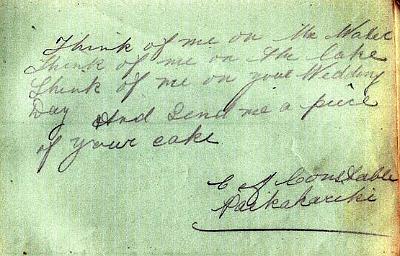 Think of me on the Water
Think of me on the lake
Think of me on your Wedding
Day and Send me a piece
of your cake
C A Constable
Paikakariki